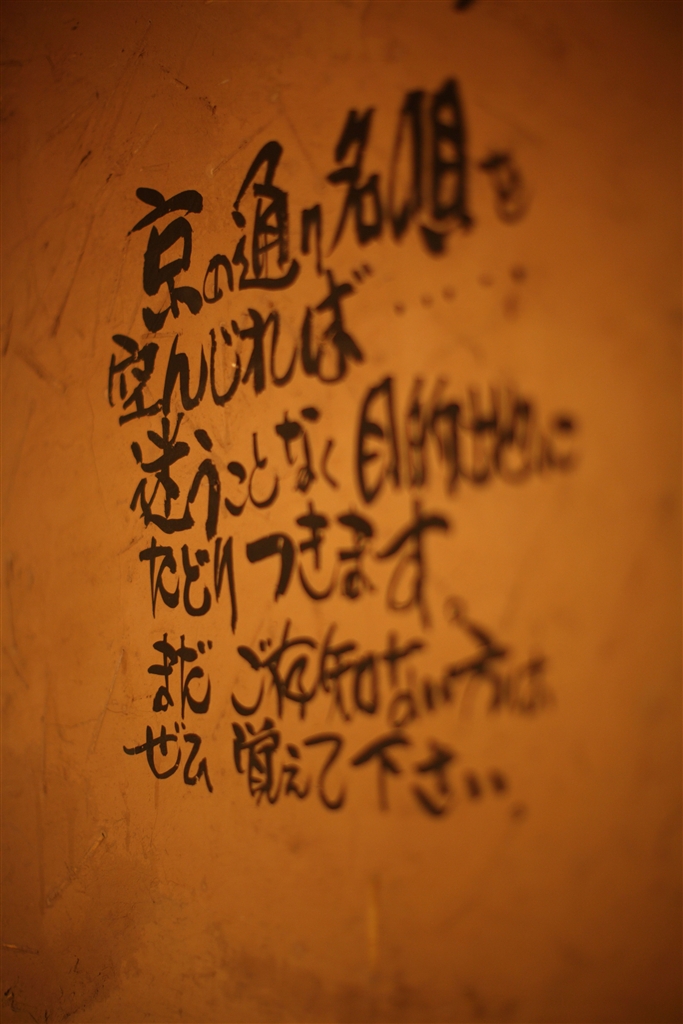 京の通り名唄を
空んじれば・・・・
迷うことなく目的地に
たどりつきます。
まだご存知ない方は、
ぜひ覚えて下さい。